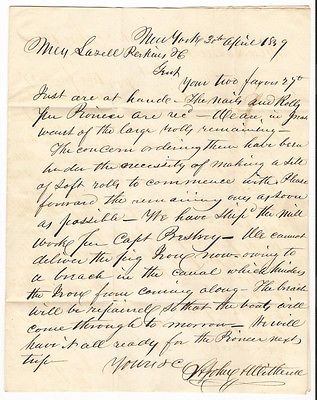 New York 30th April 1849
Mess Lazell Perkins &Co
Gent
Your two favors 27th
Inst are at hand - The nails and Rolls
per Pioneer are recd - We are in great
want of the large rolls remaining -
The concern ordering them have been
under the necessity of making a set
of soft rolls to commence with. Please
forward the remaining ones as soon
as possible - We have ship'd the mill
work per Capt - We cannot
deliver the pig Iron now owing to
a breach in the canal which hinders
the Iron from coming along - The breach
will be repaired so that the boats will
come through to morrow - We will
have it all ready for the Pioneer next
trip
Yours &c